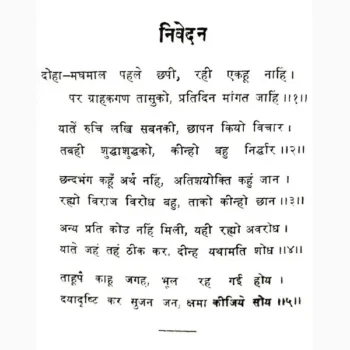 निवेदन
दोहा—मघमाल पहले छपी, रही एकहू नाहिं ।
पर ग्राहकगण तासुको, प्रतिदिन मांगत जाहिं ॥१॥
यातें रुचि लखि सबनकी, छापन कियो विचार ।
तबही शुद्धाशुद्धको, कीन्हो बहु निर्द्धार ॥२॥
छन्दभंग कहूँ अर्थ नहिं, अतिशयोक्ति कहुं जान ।
रह्यो विराज विरोध बहु, ताको कीन्हो छान ॥३॥
अन्य प्रति कोउ नहिं मिली, यही रह्यो अवरोध ।
याते जहं तहं ठीक कर, दीन्ह यथामति शोध ॥४॥
ताहूपै काहू जगह, भूल रह गई होय ।
दयादृष्टि कर सुजन जन, क्षमा कीजिये सोय ॥५॥